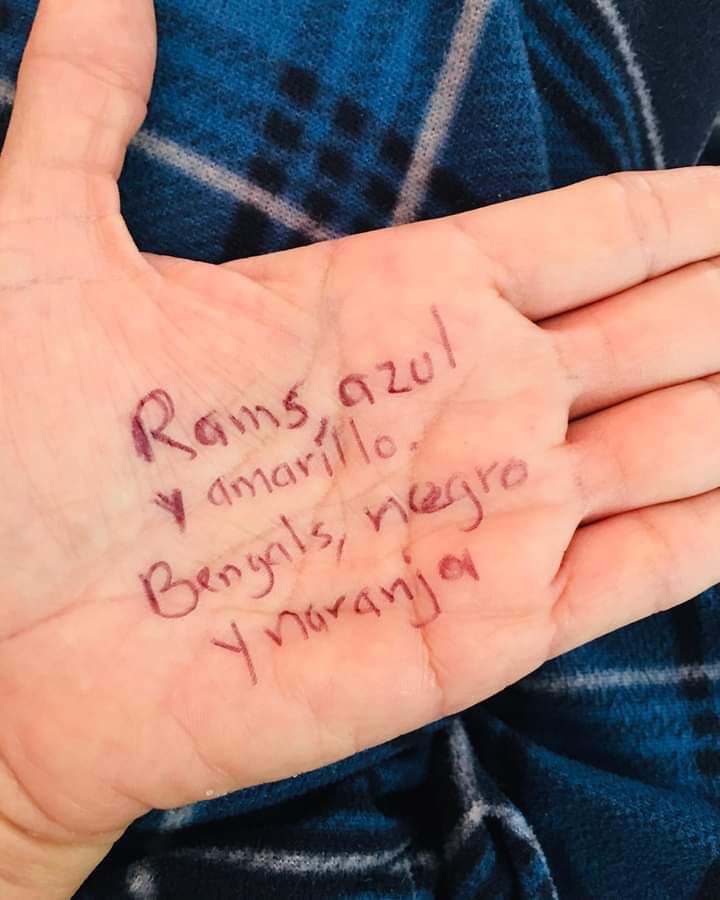 Rams, azul
y amarillo.
Bengals, negro
y naranja